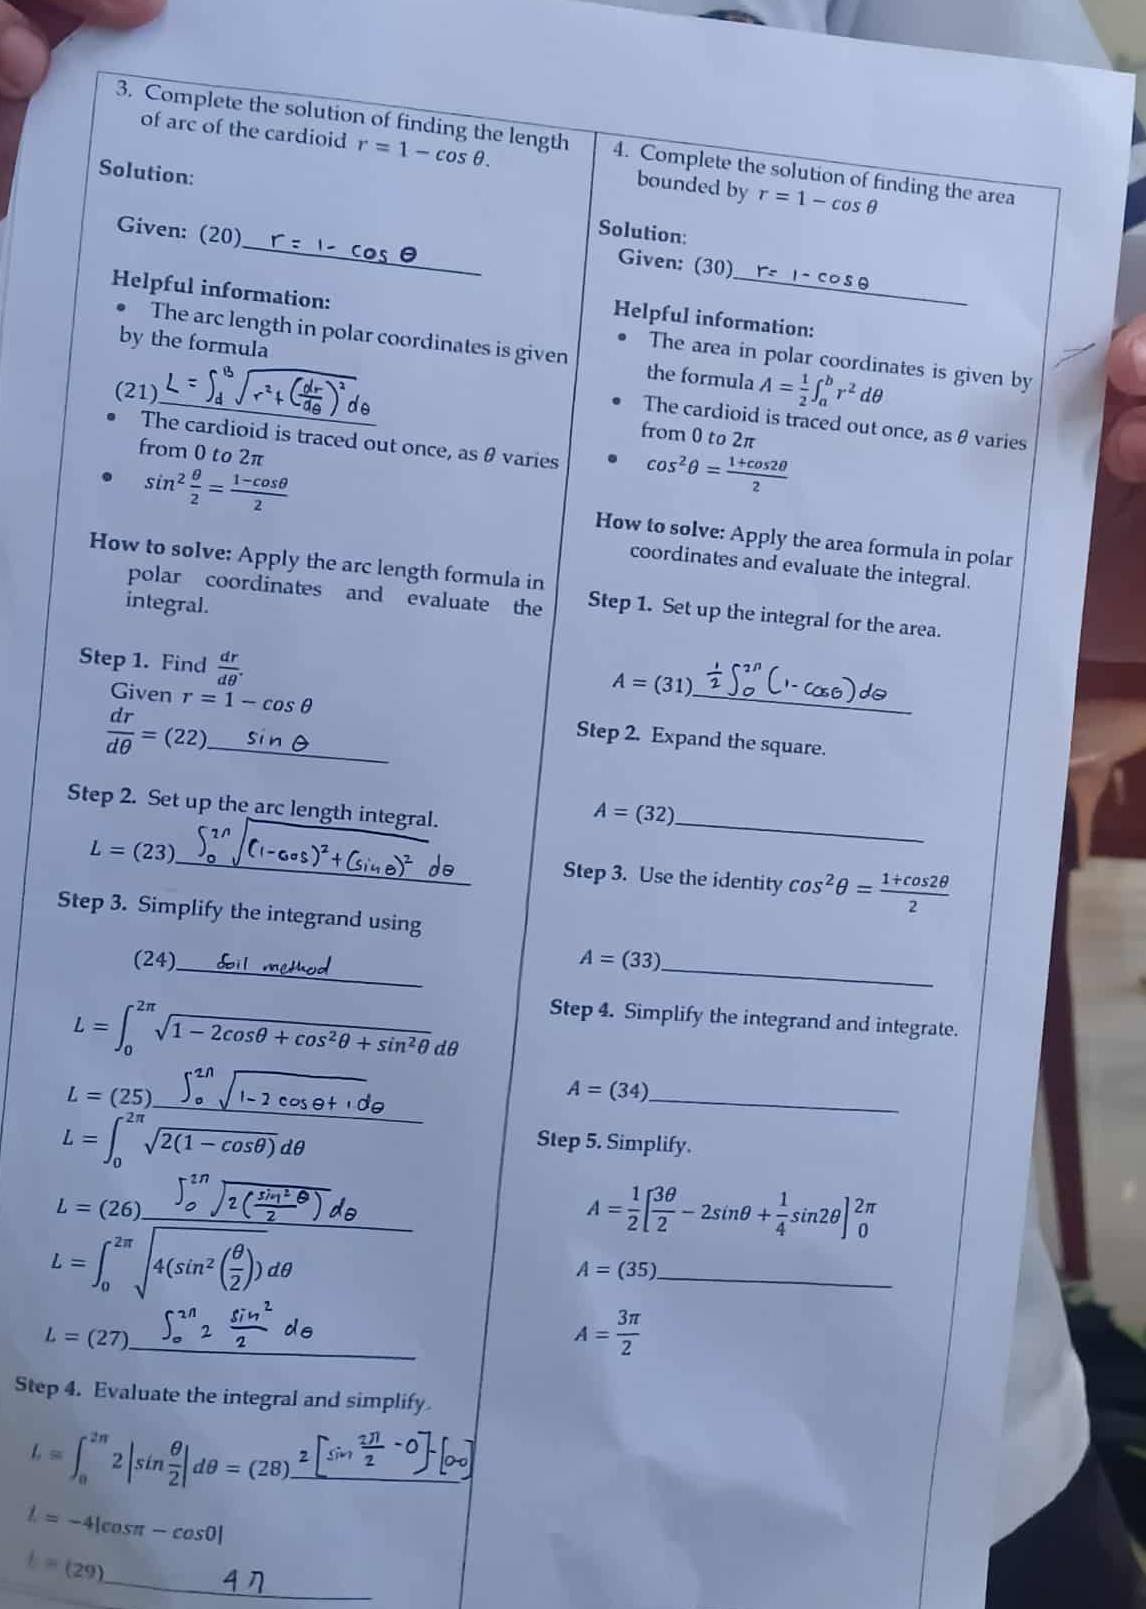 3. Complete the solution of finding the length
of arc of the cardioid r = 1 − cos θ.
Solution:
Given: (20) r = 1 - cos θ
Helpful information:
• The arc length in polar coordinates is given
by the formula
(21) L = ∫ √(r² + (dr/dθ)²) dθ
• The cardioid is traced out once, as θ varies
from 0 to 2π
• sin² θ/2 = (1−cosθ)/2
How to solve: Apply the arc length formula in
polar coordinates and evaluate the
integral.
Step 1. Find dr/dθ.
Given r = 1 − cos θ
dr/dθ = (22) sin θ
Step 2. Set up the arc length integral.
L = (23) ∫₀^2π √((1-cos)² + (sin θ)²) dθ
Step 3. Simplify the integrand using
(24) foil method
L = ∫₀^2π √(1 − 2cosθ + cos²θ + sin²θ) dθ
L = (25) ∫₀^2π √(1-2 cos θ + 1) dθ
L = ∫₀^2π √(2(1 − cosθ)) dθ
L = (26) ∫₀^2π √(2(sin² θ/2)) dθ
L = ∫₀^2π √(4(sin² (θ/2))) dθ
L = (27) ∫₀^2π 2 sin²/2 dθ
Step 4. Evaluate the integral and simplify.
L = ∫₀^2π 2|sin θ/2| dθ = (28) 2 [sin 2π/2 - 0] -
L = −4|cosπ − cos0|
L = (29) 4π
4. Complete the solution of finding the area
bounded by r = 1 − cos θ
Solution:
Given: (30) r = 1 - cos θ
Helpful information:
• The area in polar coordinates is given by
the formula A = 1/2 ∫ₐ^b r² dθ
• The cardioid is traced out once, as θ varies
from 0 to 2π
• cos²θ = (1+cos2θ)/2
How to solve: Apply the area formula in polar
coordinates and evaluate the integral.
Step 1. Set up the integral for the area.
A = (31) 1/2 ∫₀^2π (1 - cosθ) dθ
Step 2. Expand the square.
A = (32)
Step 3. Use the identity cos²θ = (1+cos2θ)/2
A = (33)
Step 4. Simplify the integrand and integrate.
A = (34)
Step 5. Simplify.
A = 1/2 [3θ/2 − 2sinθ + 1/4 sin2θ] 2π 0
A = (35)
A = 3π/2